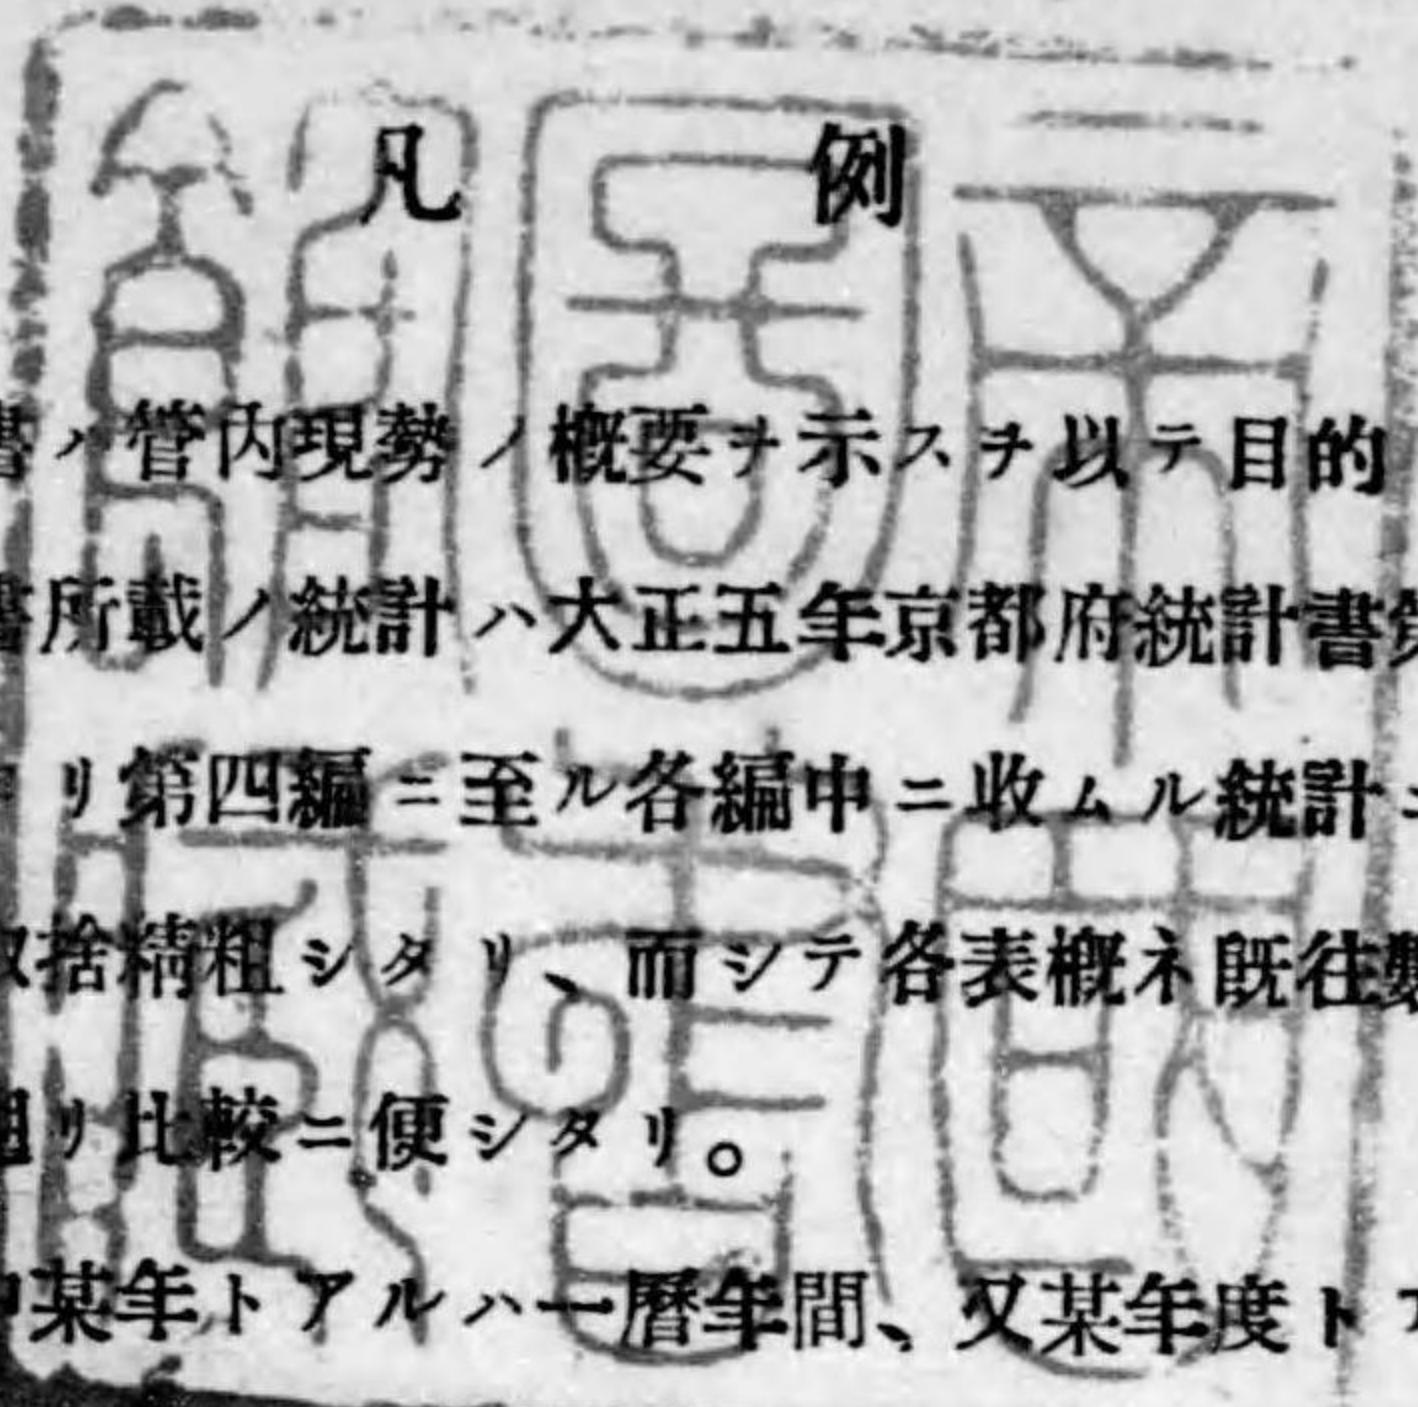 凡例
書ハ管内現勢ノ概要ヲ示スヲ以テ目的
書所載ノ統計ハ大正五年京都府統計書第
リ第四編ニ至ル各編中ニ收ムル統計ニ
取捨精粗シタリ、而シテ各表概ネ既往數
リ比較ニ便シタリ。
某年トアルハ一曆年間、又某年度トア